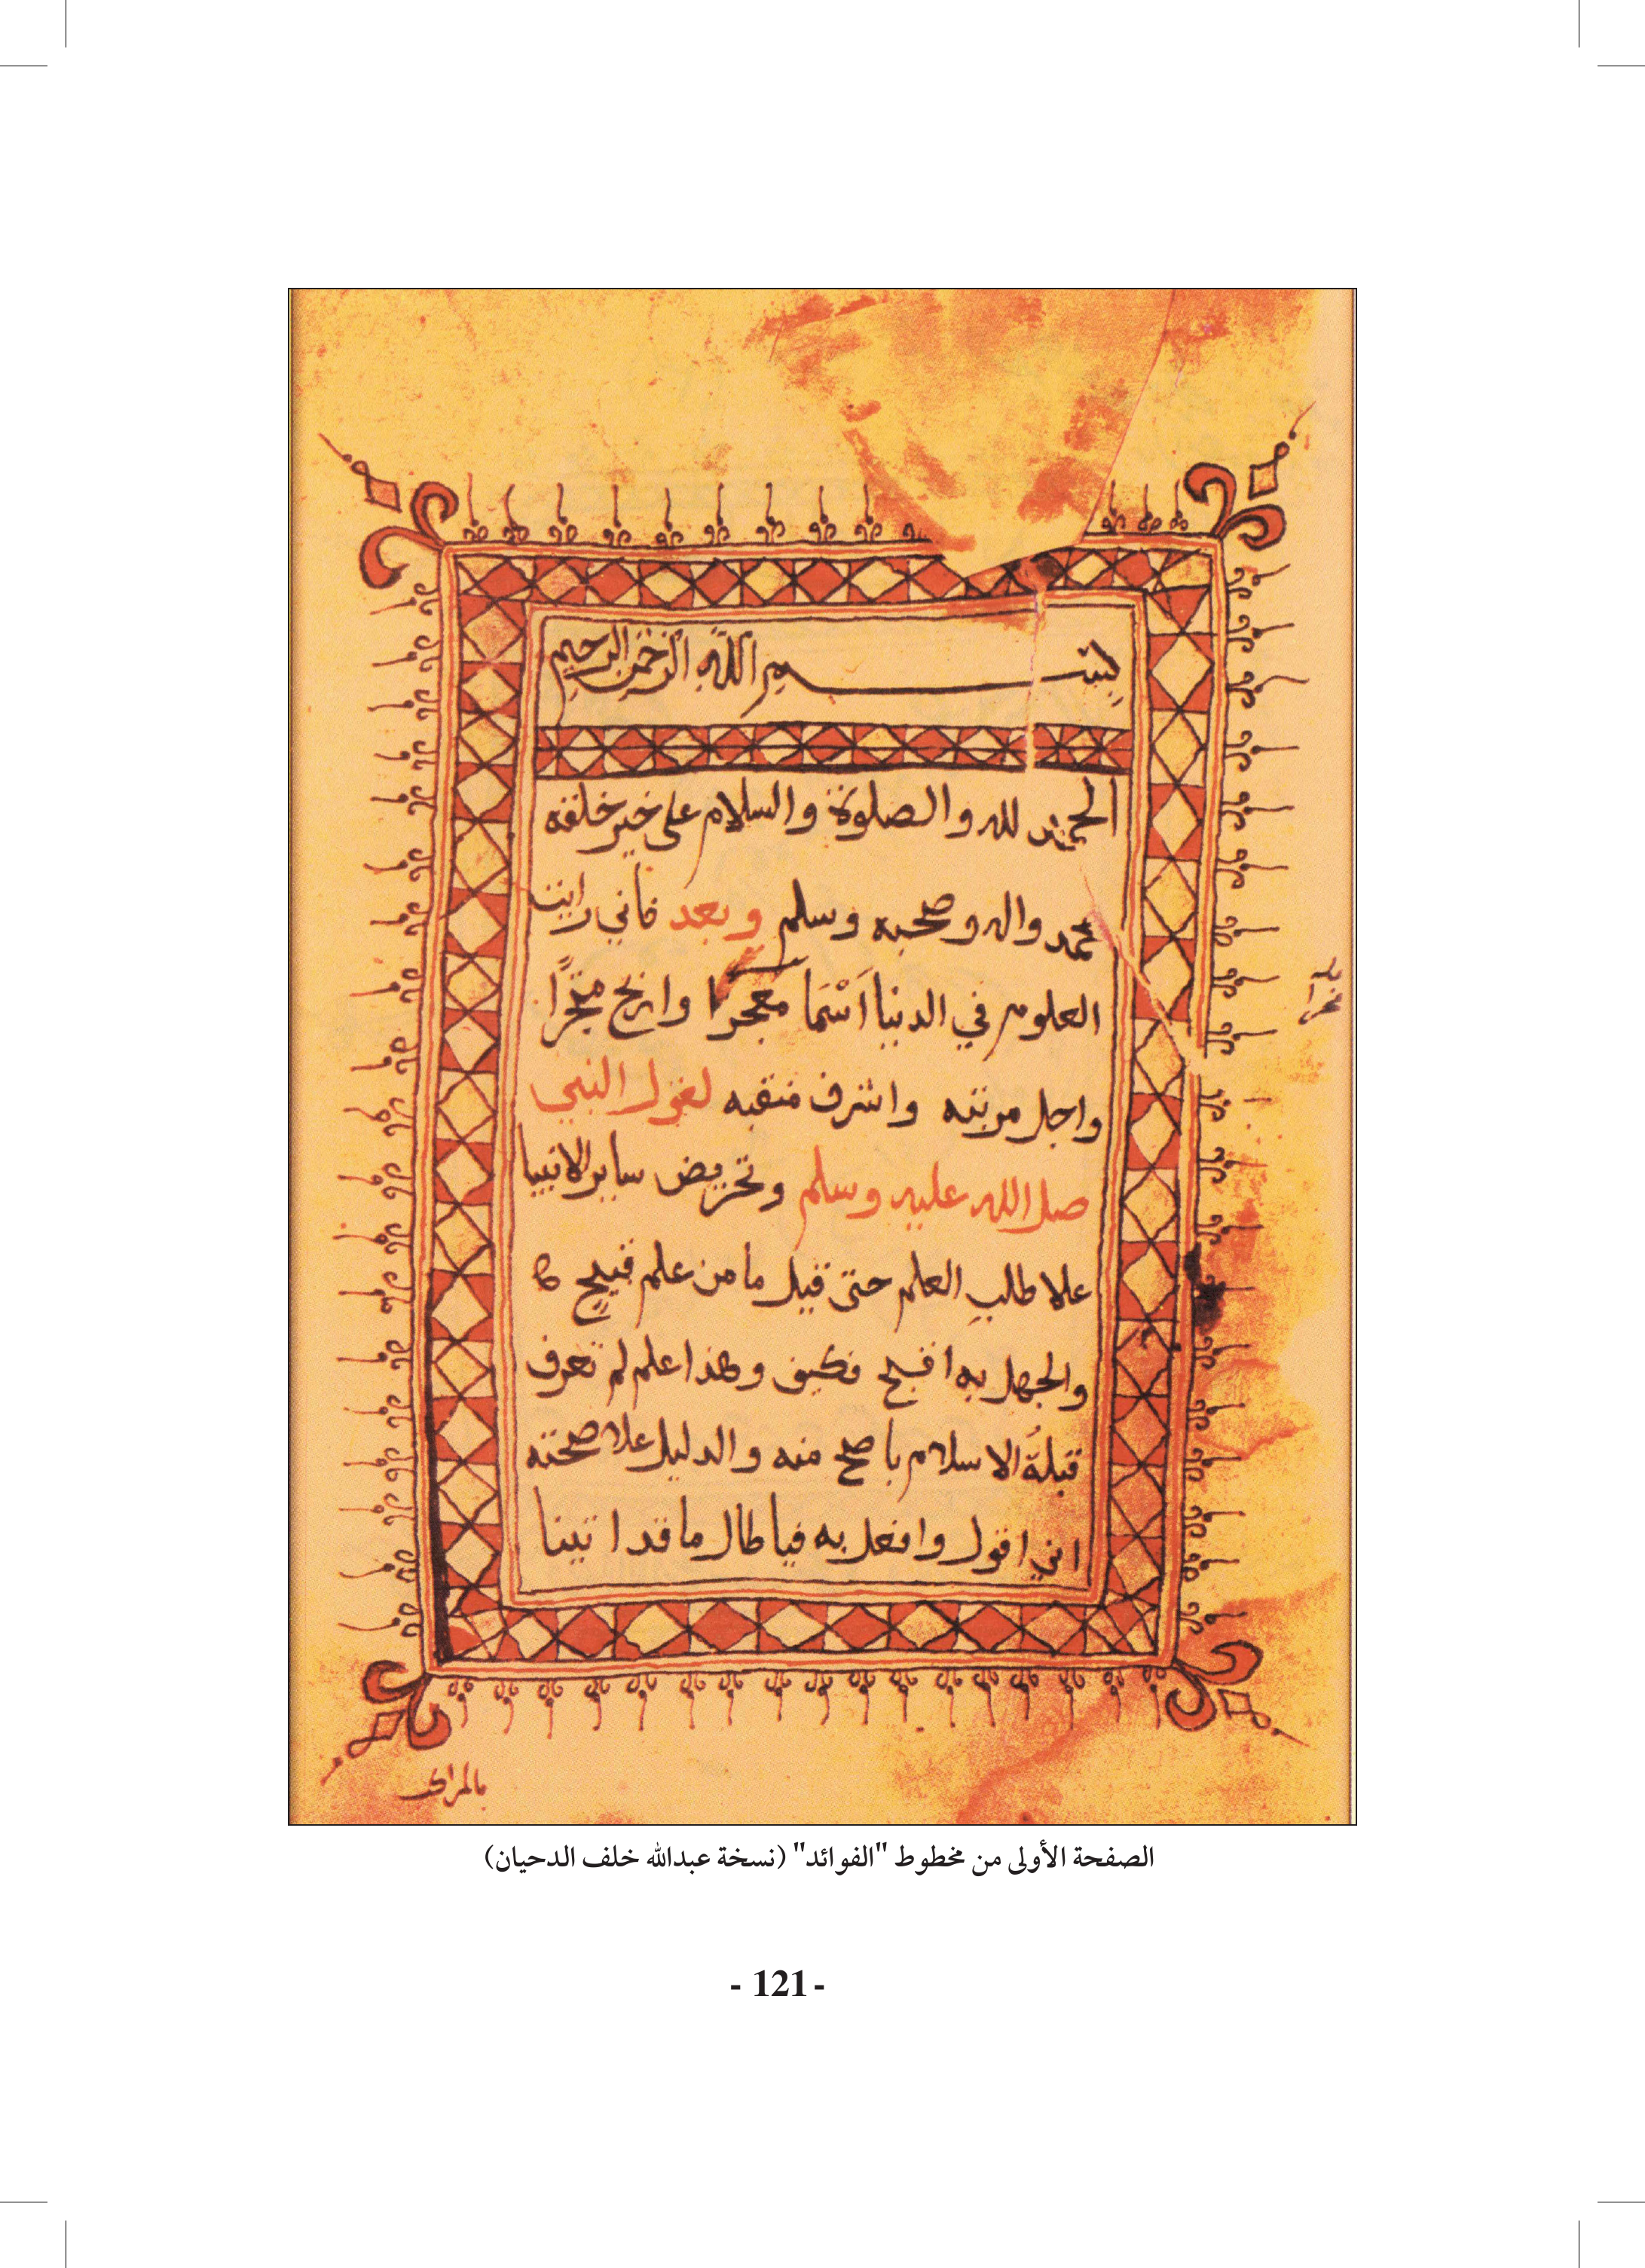 بسم الله الرحمن الرحيم
الحمد لله والصلوة والسلام على خير خلقه
محمد واله وصحبه وسلم وبعد فاني رايت
العلوم في الدنيا اسما معجرًا واربح متجرًا
واجل مرتبه واشرف منقبه لقول النبي
صل الله عليه وسلم وتحريض ساير الانبيا
علا طالب العلم حتى قيل ما من علم قبيح
والجهل به اقبح فكيف وهذا علم لم تعرف
قبلة الاسلام باصح منه والدليل علا صحته
اني اقول وافعل به فيا طال ما قد اتينا
بالمراكب
الصفحة الأولى من مخطوط "الفوائد" (نسخة عبدالله خلف الدحيان)
- 121 -